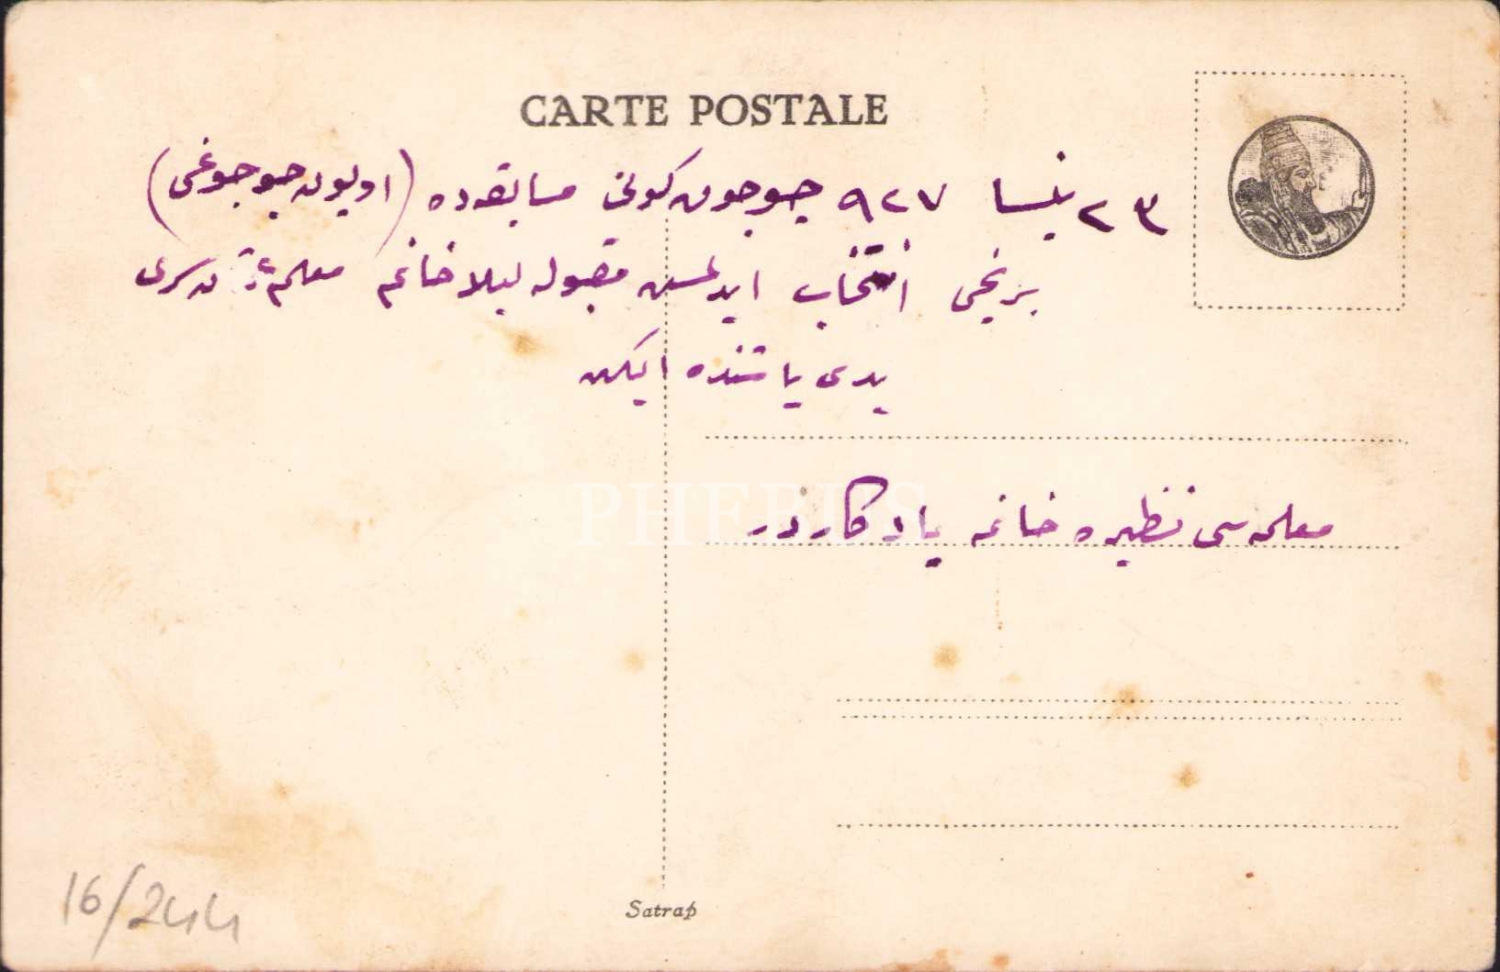 CARTE POSTALE
٢٣ نيسا ٩٢٧ چوجوق كونی مسابقه‌ده (اويون چوجوغی)
برنجی انتخاب ايدلمش مقبوله ليلا خانم معلم
يدی ياشنده ايكن
معلمه‌سی نظيره خانمه يادكاردر
PHEBUS
Satrap
16/244